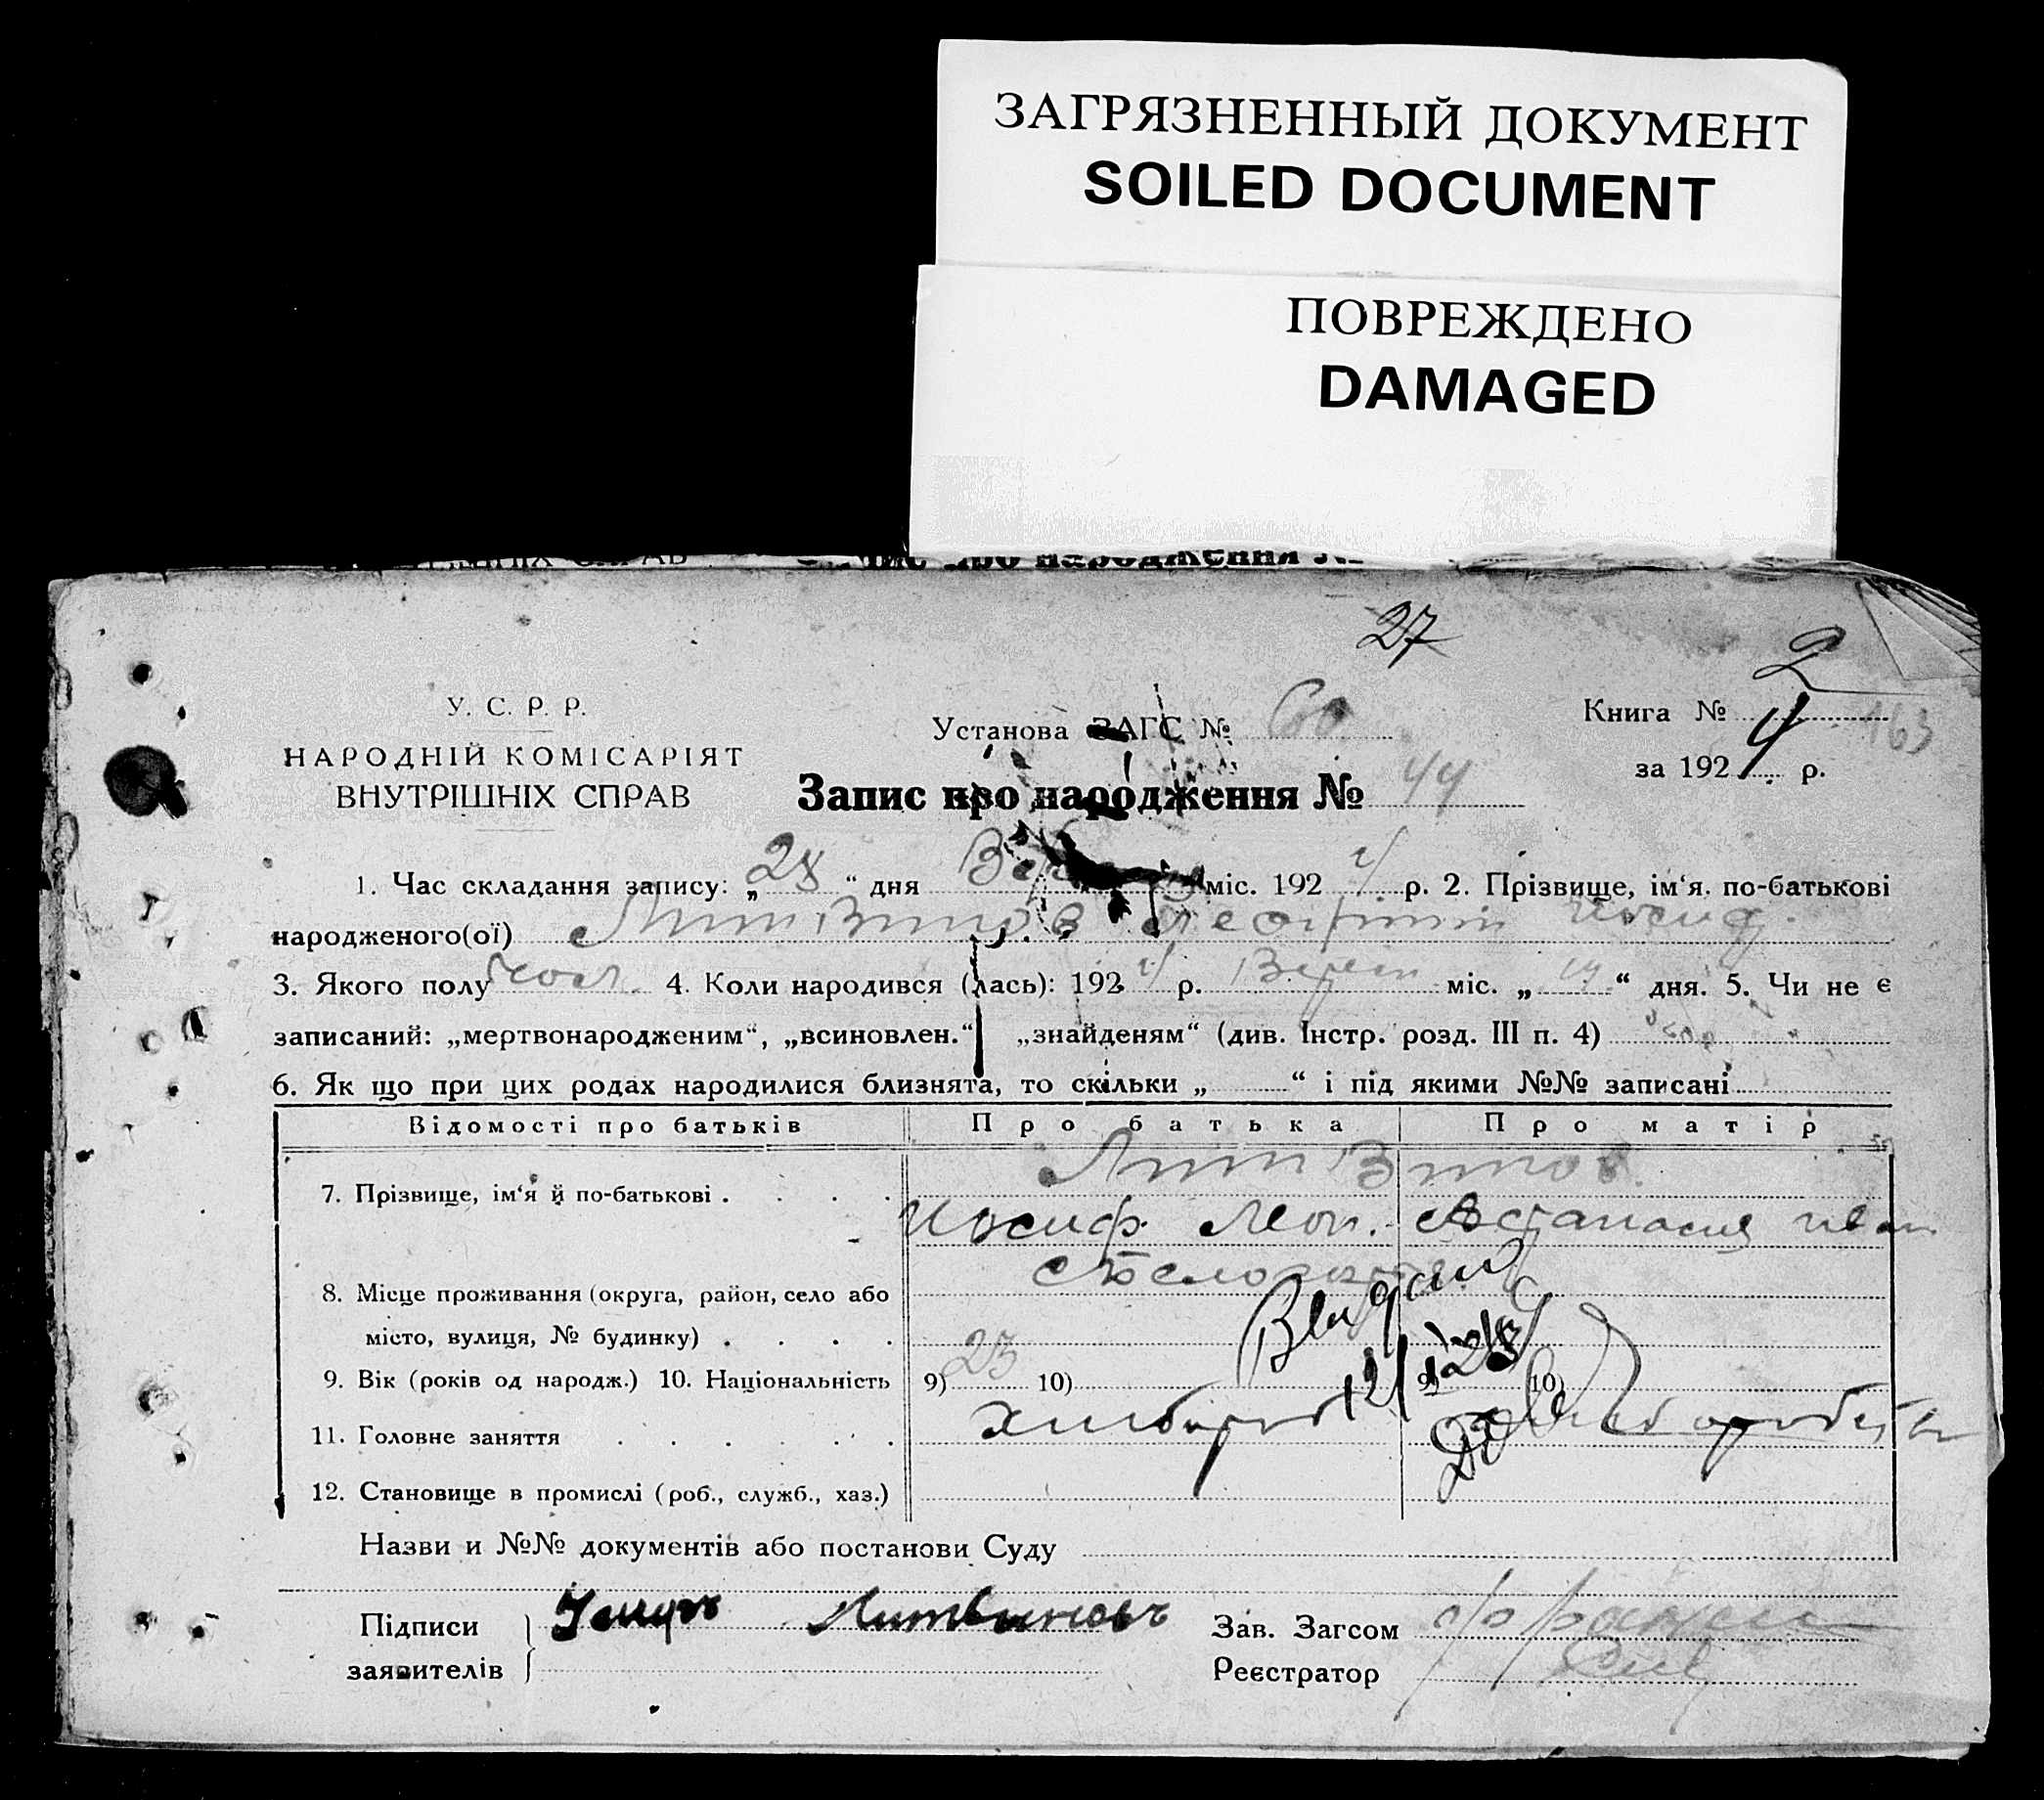 ЗАГРЯЗНЕННЫЙ ДОКУМЕНТ
SOILED DOCUMENT
ПОВРЕЖДЕНО
DAMAGED
про народження №
27
2
У. С. Р. Р.
НАРОДНІЙ КОМІСАРІЯТ
ВНУТРІШНІХ СПРАВ
Установа ЗАГС № 60
Книга № 163
за 1924 р.
Запис про народження № 44
1. Час складання запису: „28“ дня міс. 1924 р. 2. Прізвище, ім‘я. по-батькові
народженого(ої) Литвинов Иосиф.
3. Якого полу чол. 4. Коли народився (лась): 1924 р. Верес міс. „14“ дня. 5. Чи не є
записаний: „мертвонародженим“, „всиновлен.“ „знайденям“ (див. Інстр. розд. III п. 4)
6. Як що при цих родах народилися близнята, то скільки „ “ і під якими №№ записані
Відомості про батьків Про батька Про матір
7. Прізвище, ім‘я й по-батькові Литвинов.
Иосиф Леон. Анстанасия Иван
8. Місце проживання (округа, район, село або
місто, вулиця, № будинку)
Видана
9. Вік (років од народж.) 10. Національність 9) 23 10) 9) 10)
11. Головне заняття хлибороб
12. Становище в промислі (роб., служб., хаз.)
Назви и №№ документів або постанови Суду
Підписи заявителів Литвиновъ
Зав. Загсом
Реєстратор